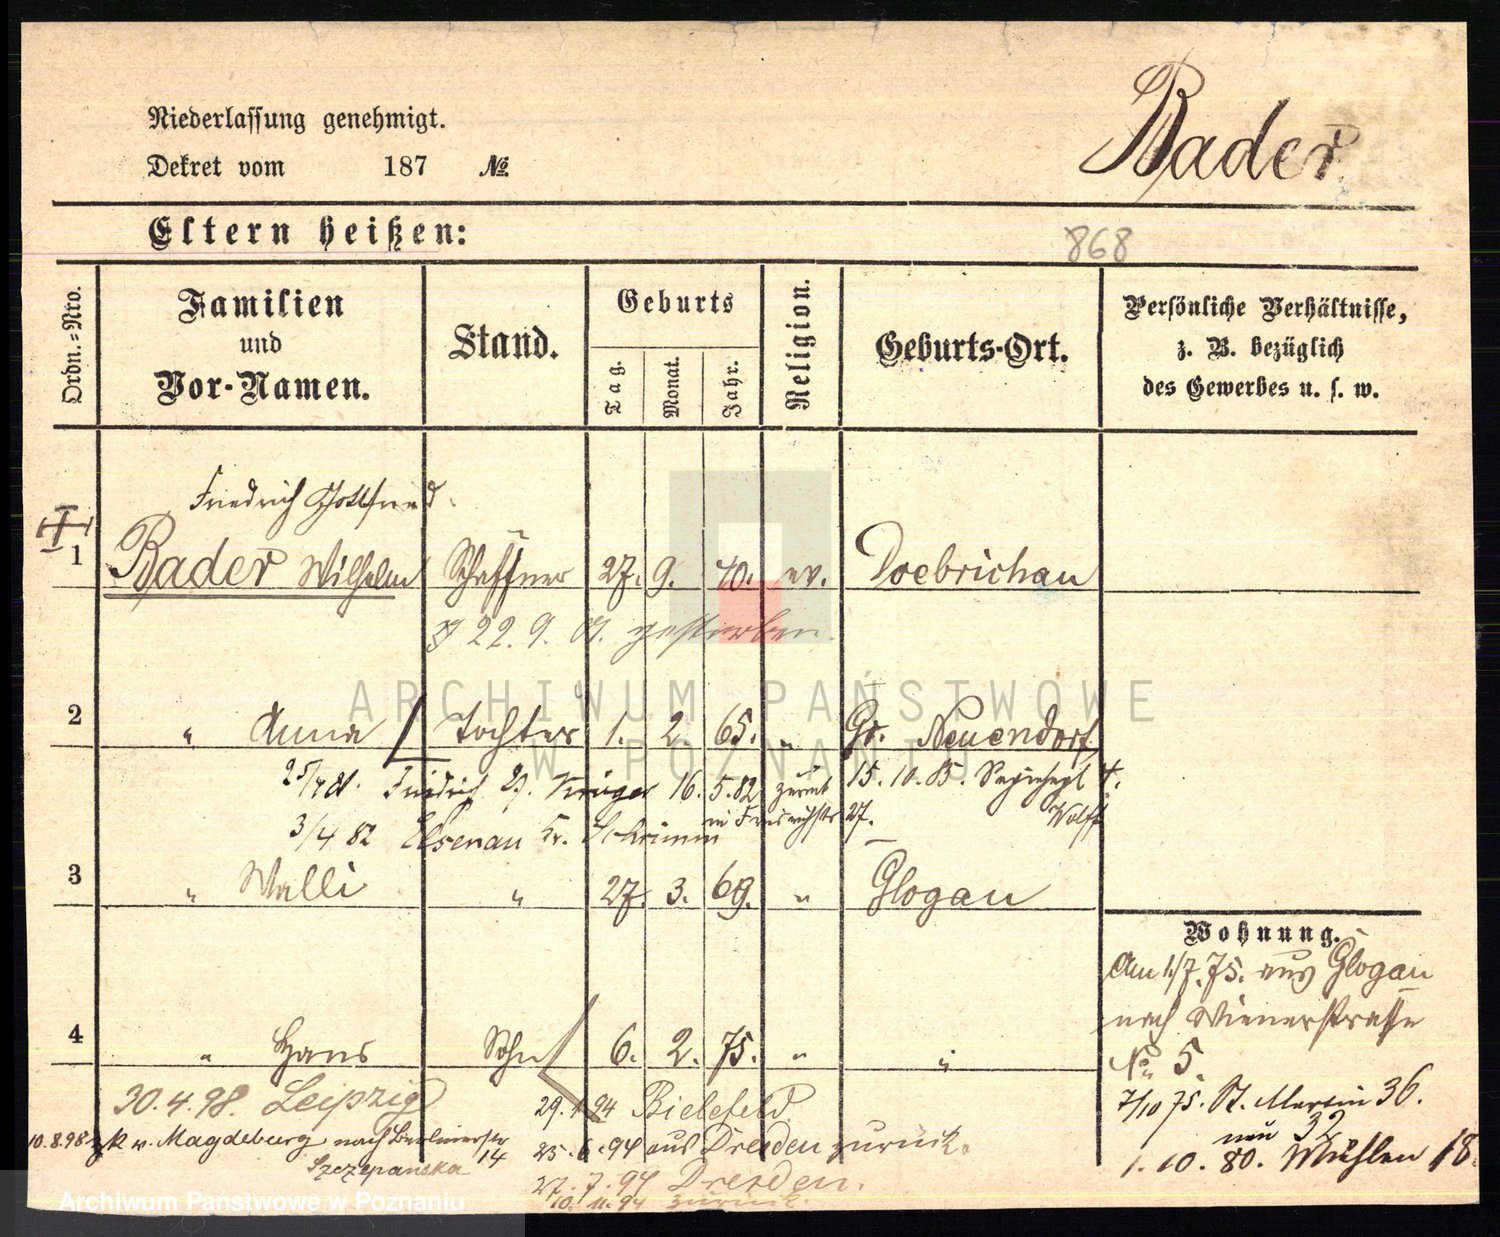 Niederlassung genehmigt.
Dekret vom 187 №
Bader
Eltern heißen:
868
Ordn.-Nro.
Familien
und
Vor-Namen.
Stand.
Geburts
Tag.
Monat.
Jahr.
Religion.
Geburts-Ort.
Persönliche Verhältnisse,
z. B. bezüglich
des Gewerbes u. s. w.
Friedrich Gottfried
1 Bader Wilhelm Schaffner 27. 9. 40. ev. Doebrichau
22. 9. 01. gestorben.
ARCHIWUM PAŃSTWOWE
W POZNANIU
2 " Anna Tochter 1. 2. 65. " Gr. Neuendorf
Friedrich Krüger 16. 5. 82 zurück 15. 10. 85.
Wolff
3/4 82 Elsenau Kr. Schrimm
3 " Walli " 27. 3. 69. " Glogau
Wohnung.
Am 1/7. 75. aus Glogau
nach Wienerstrasse
No 5.
4 " Hans Sohn 6. 2. 75. " "
7/10 75. St. Martin 36.
neu 32
1. 10. 80. Mühlen 18.
30. 4. 98. Leipzig
29. 94 Bielefeld
10.8.98 zk v. Magdeburg nach Berlinerstr
14
Szczepanska
25. 6. 94 aus Dresden zurück.
27. 7. 94 Dresden.
10. 11. 94 zurück.
Archiwum Państwowe w Poznaniu